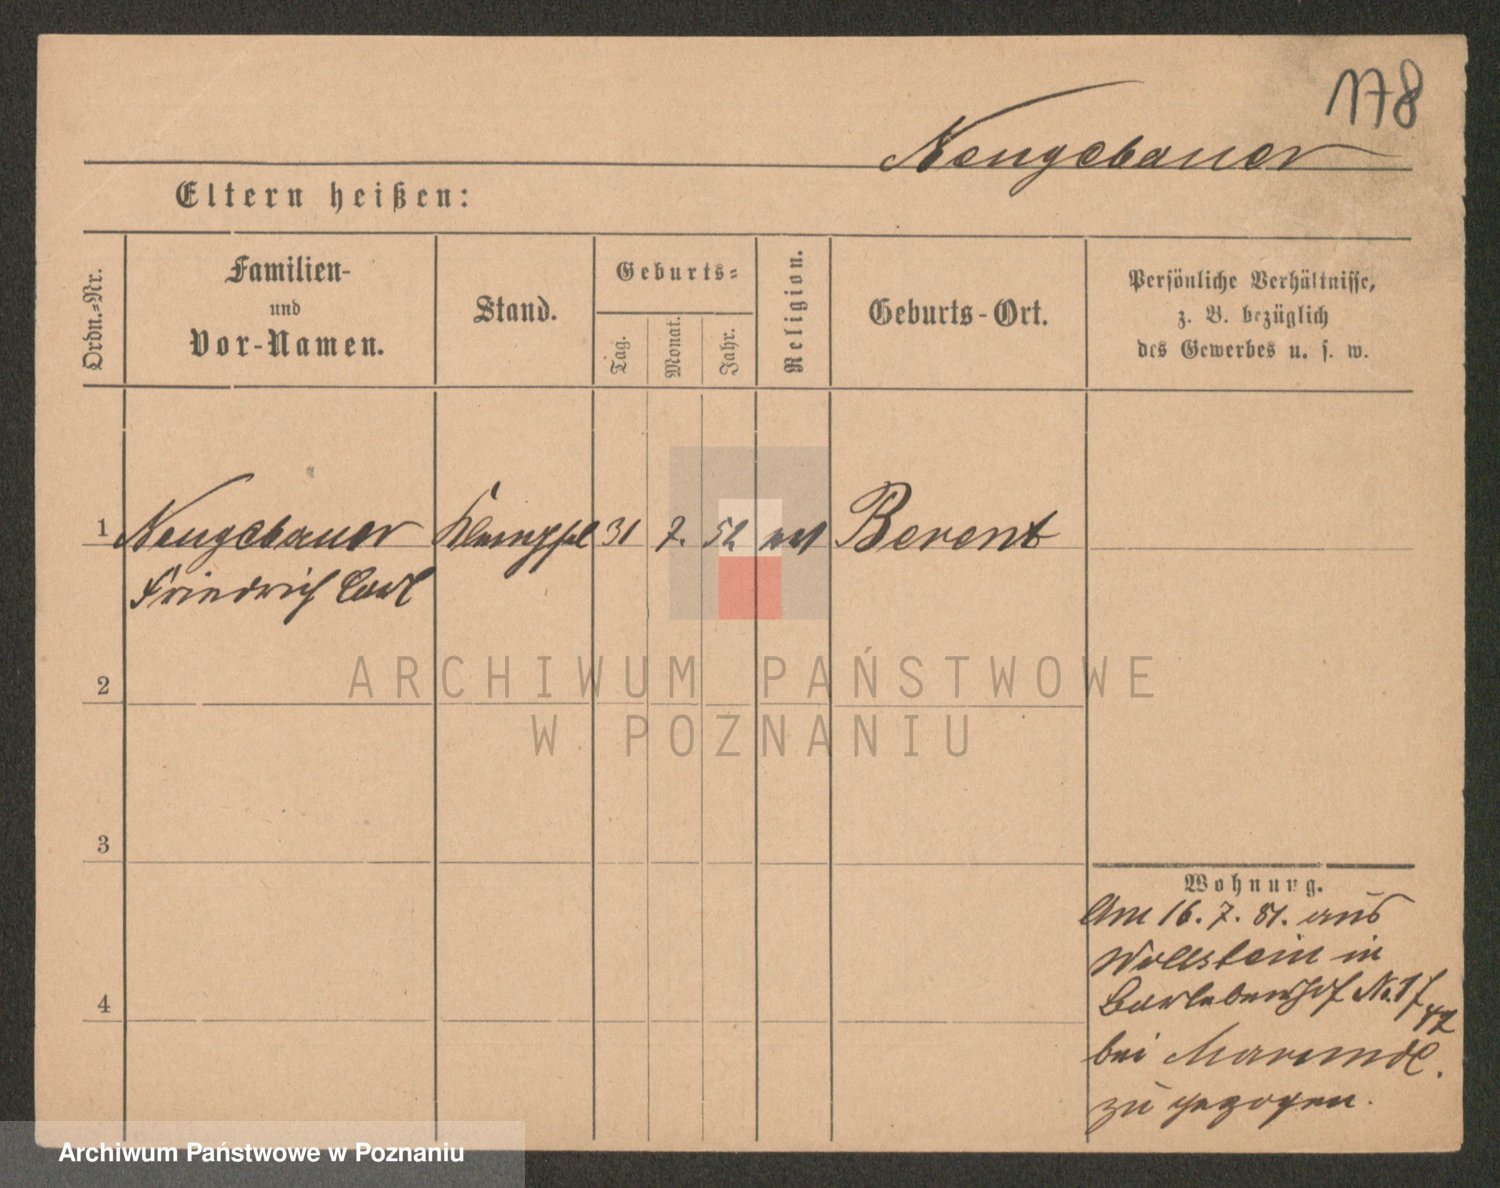 178
Neugebauer
Eltern heißen:
Ordn.-Nr.
Familien-
und
Vor-Namen.
Stand.
Geburts-
Tag.
Monat.
Jahr.
Religion.
Geburts-Ort.
Persönliche Verhältnisse,
z. B. bezüglich
des Gewerbes u. s. w.
1 Neugebauer 31 7. 52 Berent
Friedrich Carl
2
3
4
Wohnung.
Am 16. 7. 81. aus
Wollstein in
No. 1
bei
zu gezogen.
ARCHIWUM PAŃSTWOWE
W POZNANIU
Archiwum Państwowe w Poznaniu